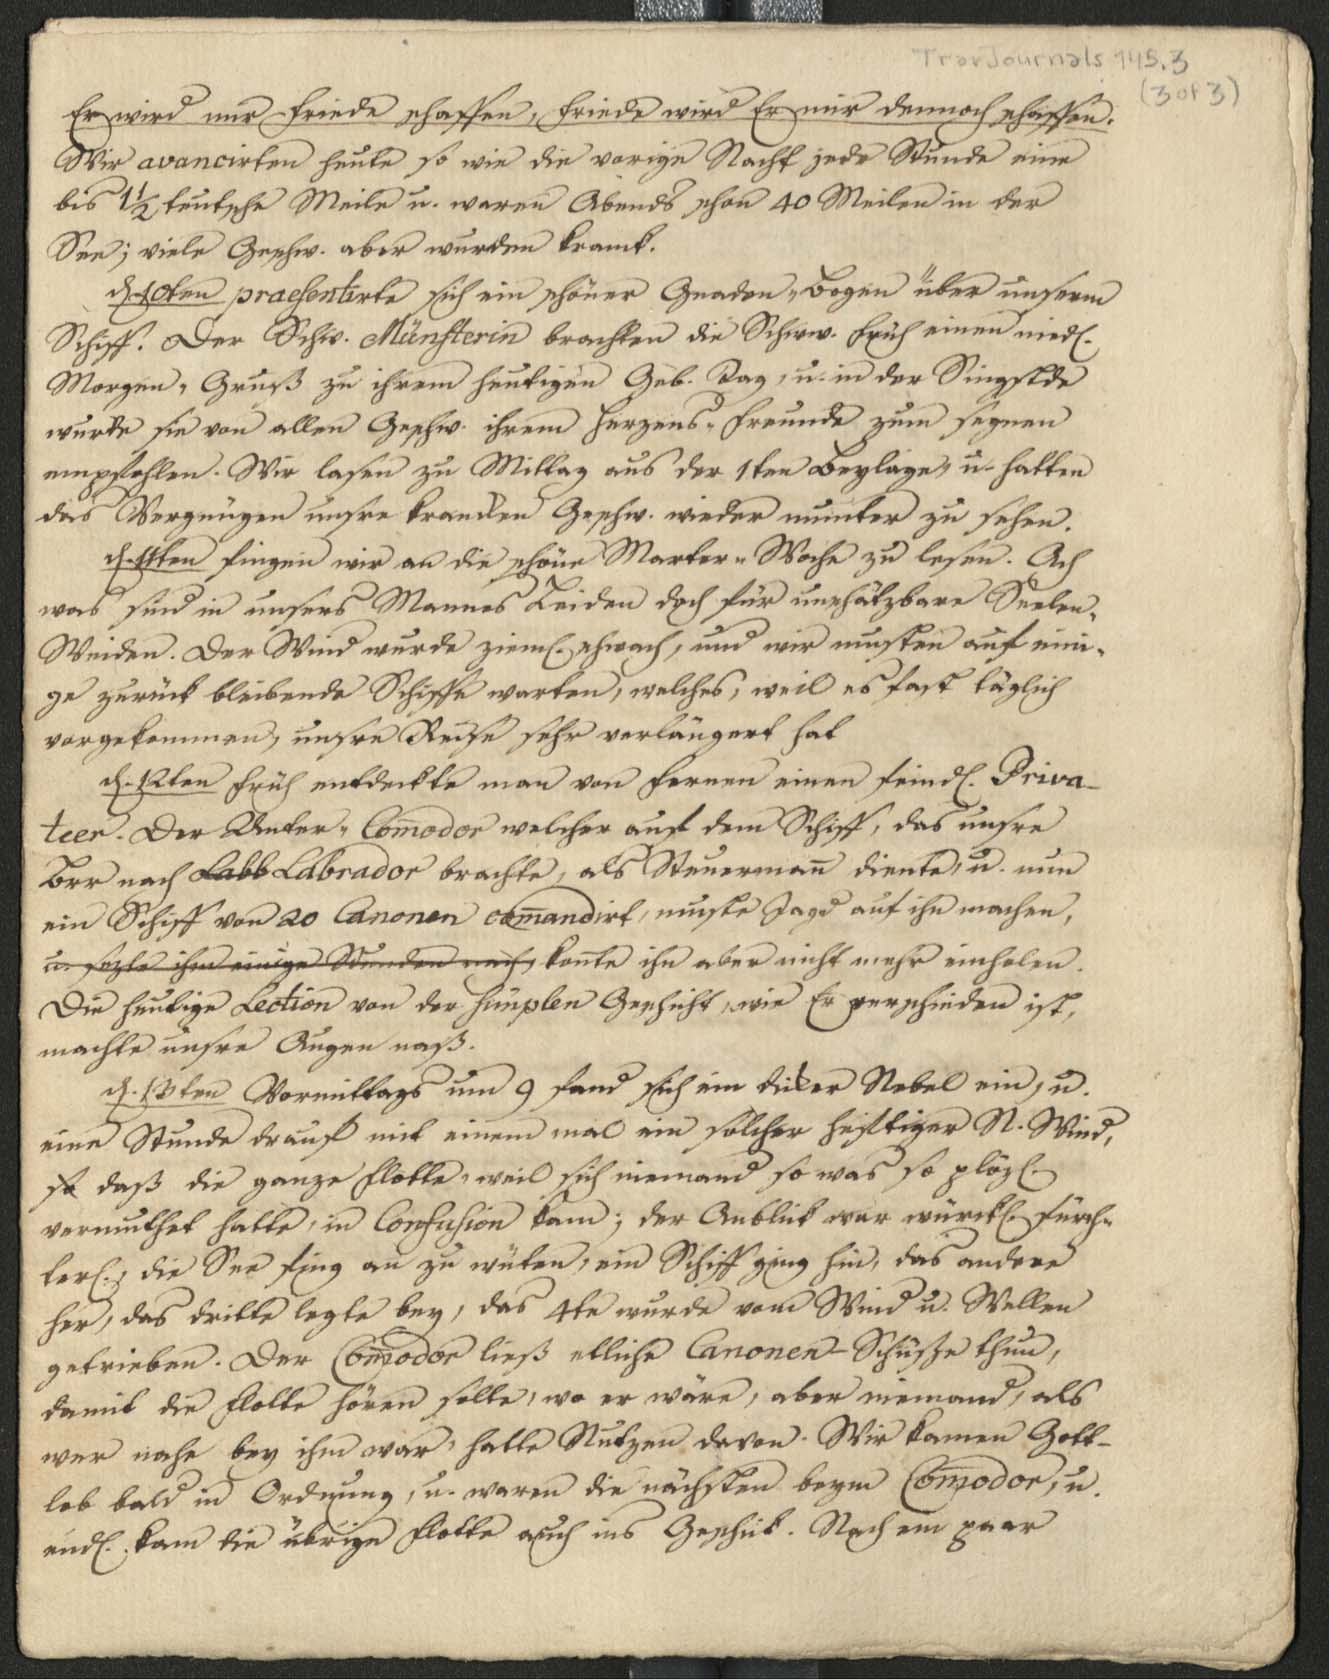 TravJournals 145.3
(3 of 3)
Er wird mir Friede schaffen, Friede wird Er mir dennoch schaffen.
Wir avancirten heute so wie die vorige Nacht jede Stunde eine
bis 1½ teutsche Meile u. waren Abends schon 40 Meilen in der
See; viele Geschw. aber wurden kranck.
d. 10ten praesentirte sich ein schöner Gnaden-Bogen über unserm
Schiff. Der Schw. Münsterin brachten die Schww. früh einen niedl.
Morgen-Gruß zu ihrem heutigen Geb. Tag, u. in der Singstde
wurde sie von allen Geschw. ihrem Herzens-Freunde zum segnen
empfohlen. Wir lasen zu Mittag aus der 1ten Beylage, u. hatten
das Vergnügen unsre krancken Geschw. wieder munter zu sehen.
d. 11ten fingen wir an die schöne Marter-Woche zu lesen. Ach
was sind in unsers Mannes Leiden doch für unschätzbare Seelen-
Weiden. Der Wind wurde zieml. schwach, und wir musten auf eini-
ge zurück bleibende Schiffe warten, welches, weil es fast täglich
vorgekommen, unsre Reise sehr verlängert hat
d. 12ten früh entdeckte man von Fernen einen feindl. Priva-
teer. Der Unter-Com̄odor welcher auf dem Schiff, das unsre
Brr nach Labb Labrador brachte, als Steuermañ diente, u. nun
ein Schiff von 20 Canonen com̄andirt, muste Jagd auf ihn machen,
u. sezte ihm einige Stunden nach, koñte ihn aber nicht mehr einholen.
Die heutige Lection von der simplen Geschicht, wie Er verschieden ist,
machte unsre Augen naß.
d. 13ten Vormittags um 9 fand sich ein dicker Nebel ein, u.
eine Stunde drauf mit einem mal ein solcher heftiger N. Wind,
so daß die ganze Flotte, weil sich niemand so was so plözl.
vermuthet hatte, in Confusion kam; der Anblick war würckl. fürch-
terl., die See fing an zu wüten, ein Schiff ging hin, das andere
her, das dritte legte bey, das 4te wurde vom Wind u. Wellen
getrieben. Der Com̄odor ließ etliche Canonen-Schüße thun,
damit die Flotte hören solte, wo er wäre, aber niemand, als
wer nahe bey ihm war, hatte Nutzen davon. Wir kamen Gott-
lob bald in Ordnung, u. waren die nächsten beym Com̄odor, u.
endl. kam die übrige Flotte auch ins Geschick. Nach ein paar